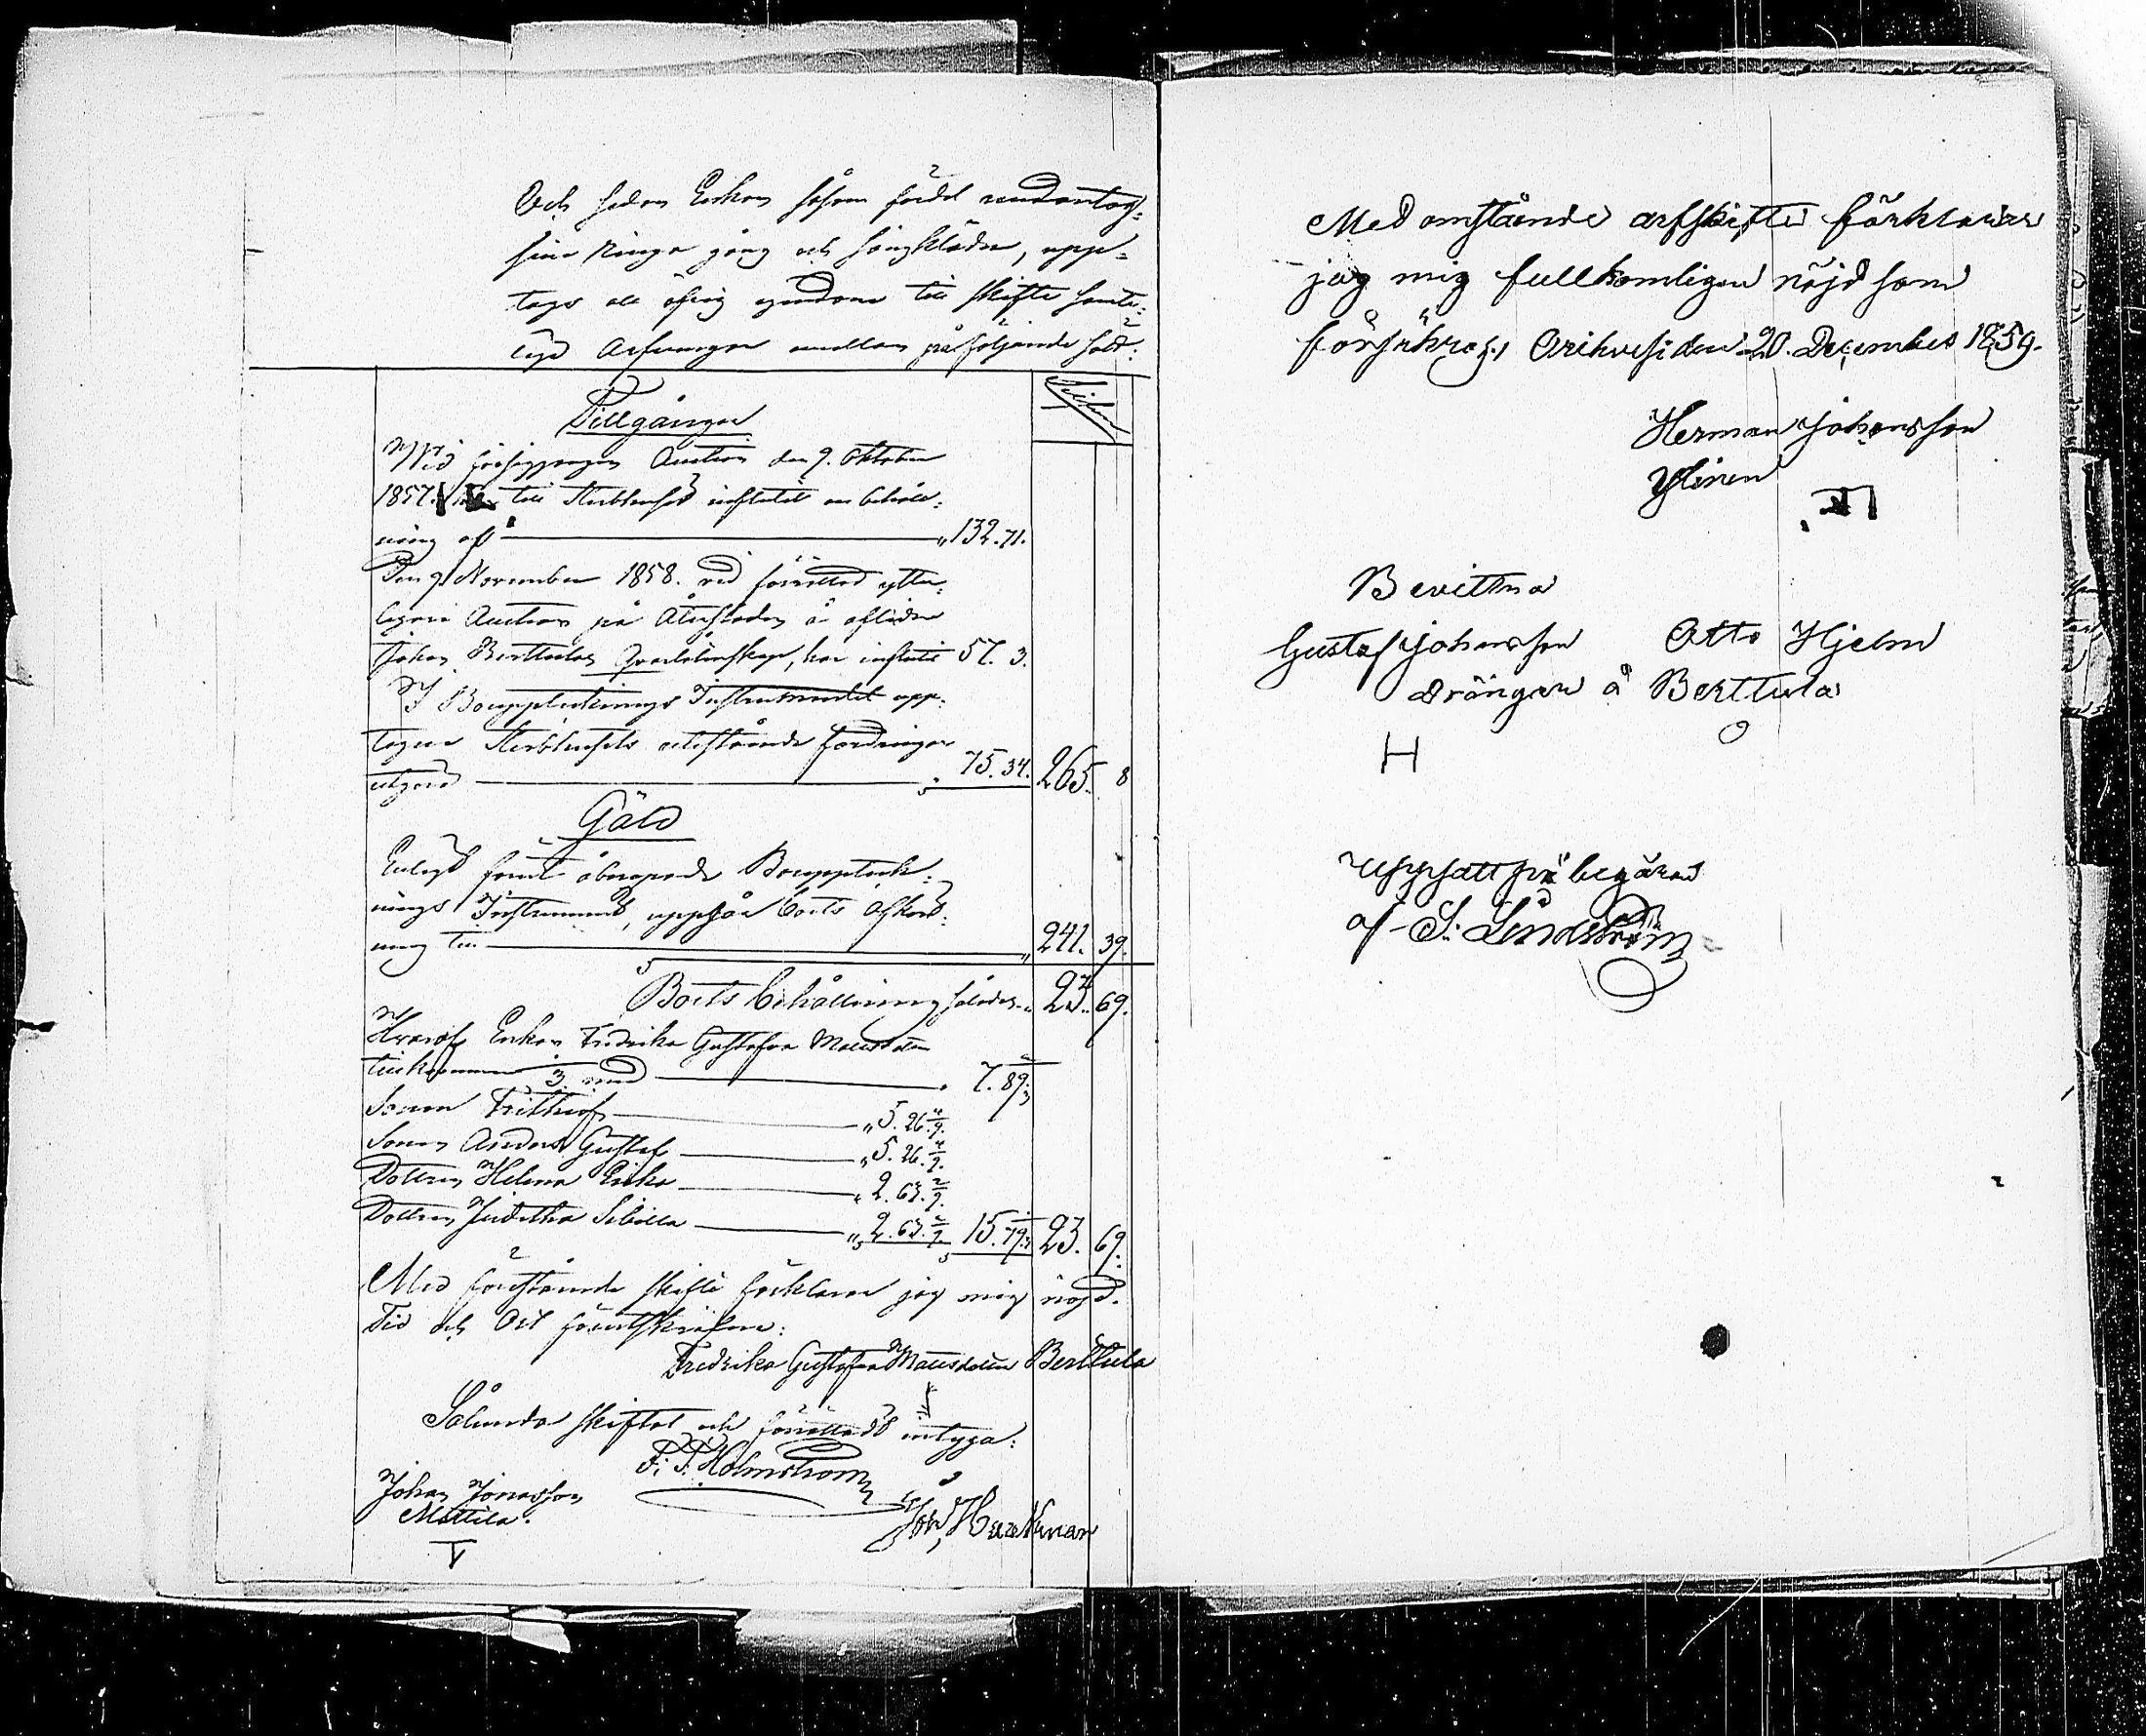 Och sedan Enkan såsom fördel undantag-
sina ringa gång och sängkläder, upp-
togs all öfrig egendom till skifte samte-
lige Arfvingar emellan på följande sätt:
Tillgångar
Silfver
Wid försiggången Auction den 9. Oktober
1857. till Sterbhuset influtit en behåll-
ning af " 132. 71.
Den 9 November 1858. vid förrättad ytter-
ligare Auction på Återstoden å aflidne
Johan Berttulas qvarlåtenskap, har influtit 57. 3.
I Boupptecknings Instrumentet upp-
tagne Sterbhusets utestående fordringar
utgöra " 75. 34. 265. 8
Gäld
Enligt förut åberopade Bouppteck-
nings Instrument, uppgår boets afkort-
ning till " 241. 39.
Boets behållning således " 23. 69.
Hvaraf Enkan Fredrika Gustafva Mattsdotter
tillkommer 1/3 med " 7. 89 2/3
Sonen Frithiof " 5. 26 4/9.
Sonen Anders Gustaf " 5. 26. 4/9.
Dottren Helena Erika " 2. 63. 2/9.
Dottren Juditha Sibilla " 2. 63. 2/9. 15. 79 1/3 23. 69.
Med förestående skifte förklarar jag mig nöjd.
Tid och Ort förutskrifne:
Fredrika Gustafva Mattsdotter Berttula
Sålunda skiftat och förrättadt intyga:
F: F. Holmström
Johan Jönasson
Mattila.
Joh,
Med omstående arfskifte förklarar
jag mig fullkomligen nöjd som
försäkras, Orihvesi den 20. December 1859.
Herman Johansson
Ylinen
Bevittna
Gustaf Johansson Otto Hjelm
drängar å Berttula
H
Uppsatt på begäran
af S: Lindström